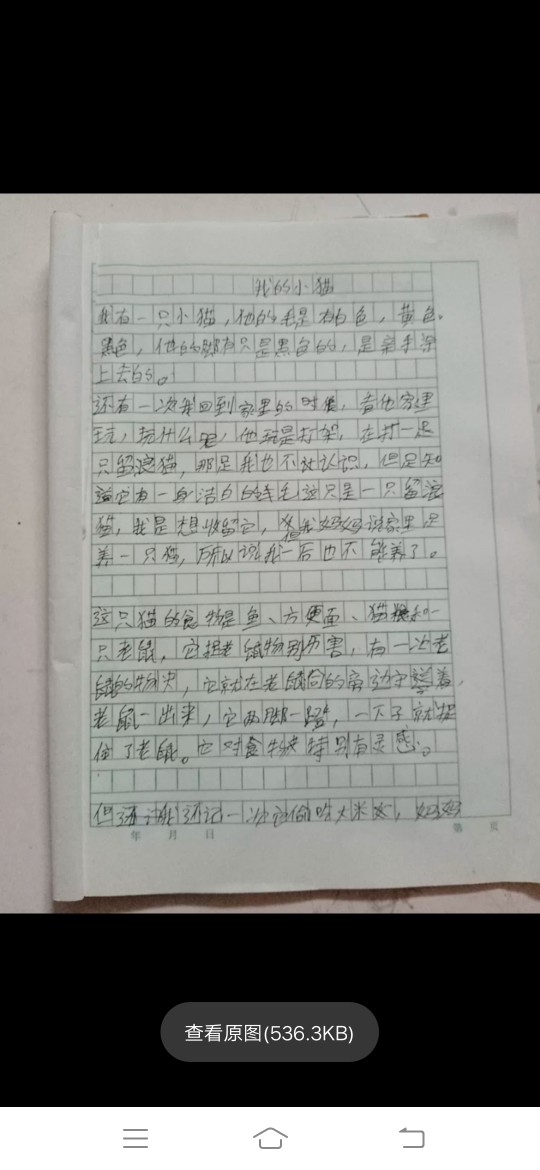 我的小猫
我有一只小猫，他的毛是有白色，黄色。
黑色，他的脚有只是黑白的，是亲手染
上去的。
还有一次我回到家里的时候，看他家里
玩，玩什么呢，他玩是打架，在打一起
只留浪猫，那是我也不认识，但是知
道它有一身洁白的线毛这只是一只留浪
猫，我是想收留它，我妈妈说家里只
养一只猫，所以说我一后也不能养了。
这只猫的食物是鱼、方便面、猫粮和一
只老鼠，它捉老鼠特别厉害，有一次老
鼠的，它就在老鼠的旁边守着，
老鼠一出来，它两脚一蹬，一下子就把
住了老鼠。它对食物特别有灵感。
但还记一次它偷吃大米，妈妈
年 月 日
第 页
查看原图(536.3KB)